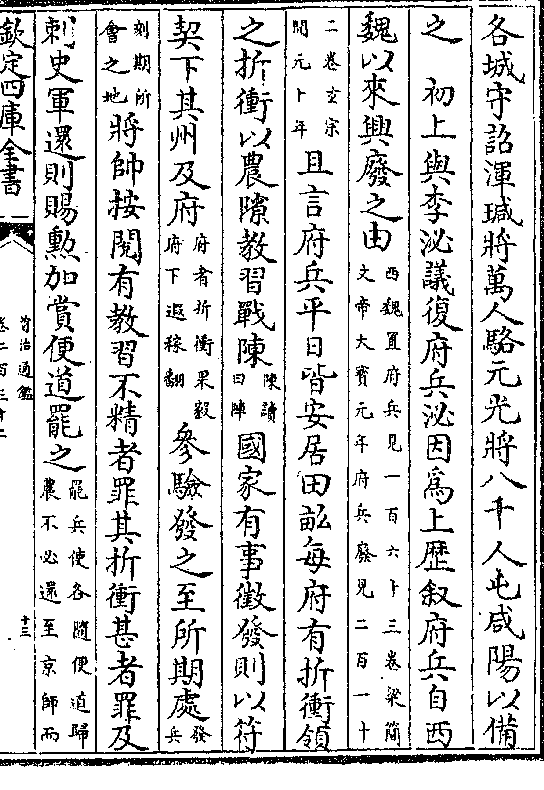 各城守詔渾瑊將萬人駱元光將八千人屯咸陽以備
之　初上與李泌議復府兵泌因為上歴叙府兵自西
魏以來興廢之由
西魏置府兵見一百六十三卷梁簡
文帝大寳元年府兵廢見二百一十
二卷玄宗
開元十年
且言府兵平日皆安居田畝每府有折衝領
之折衝以農隙教習戰陳
陳讀
曰陣
國家有事徵發則以符
契下其州及府
府者折衝果毅
府下遐稼翻
參驗發之至所期處
發兵
刻期所
會之地
將帥按閱有教習不精者罪其折衝甚者罪及
刺史軍還則賜勲加賞便道罷之
罷兵使各隨便道歸
農不必還至京師而
欽定四庫全書
資治通鑑
卷二百三十二
十三